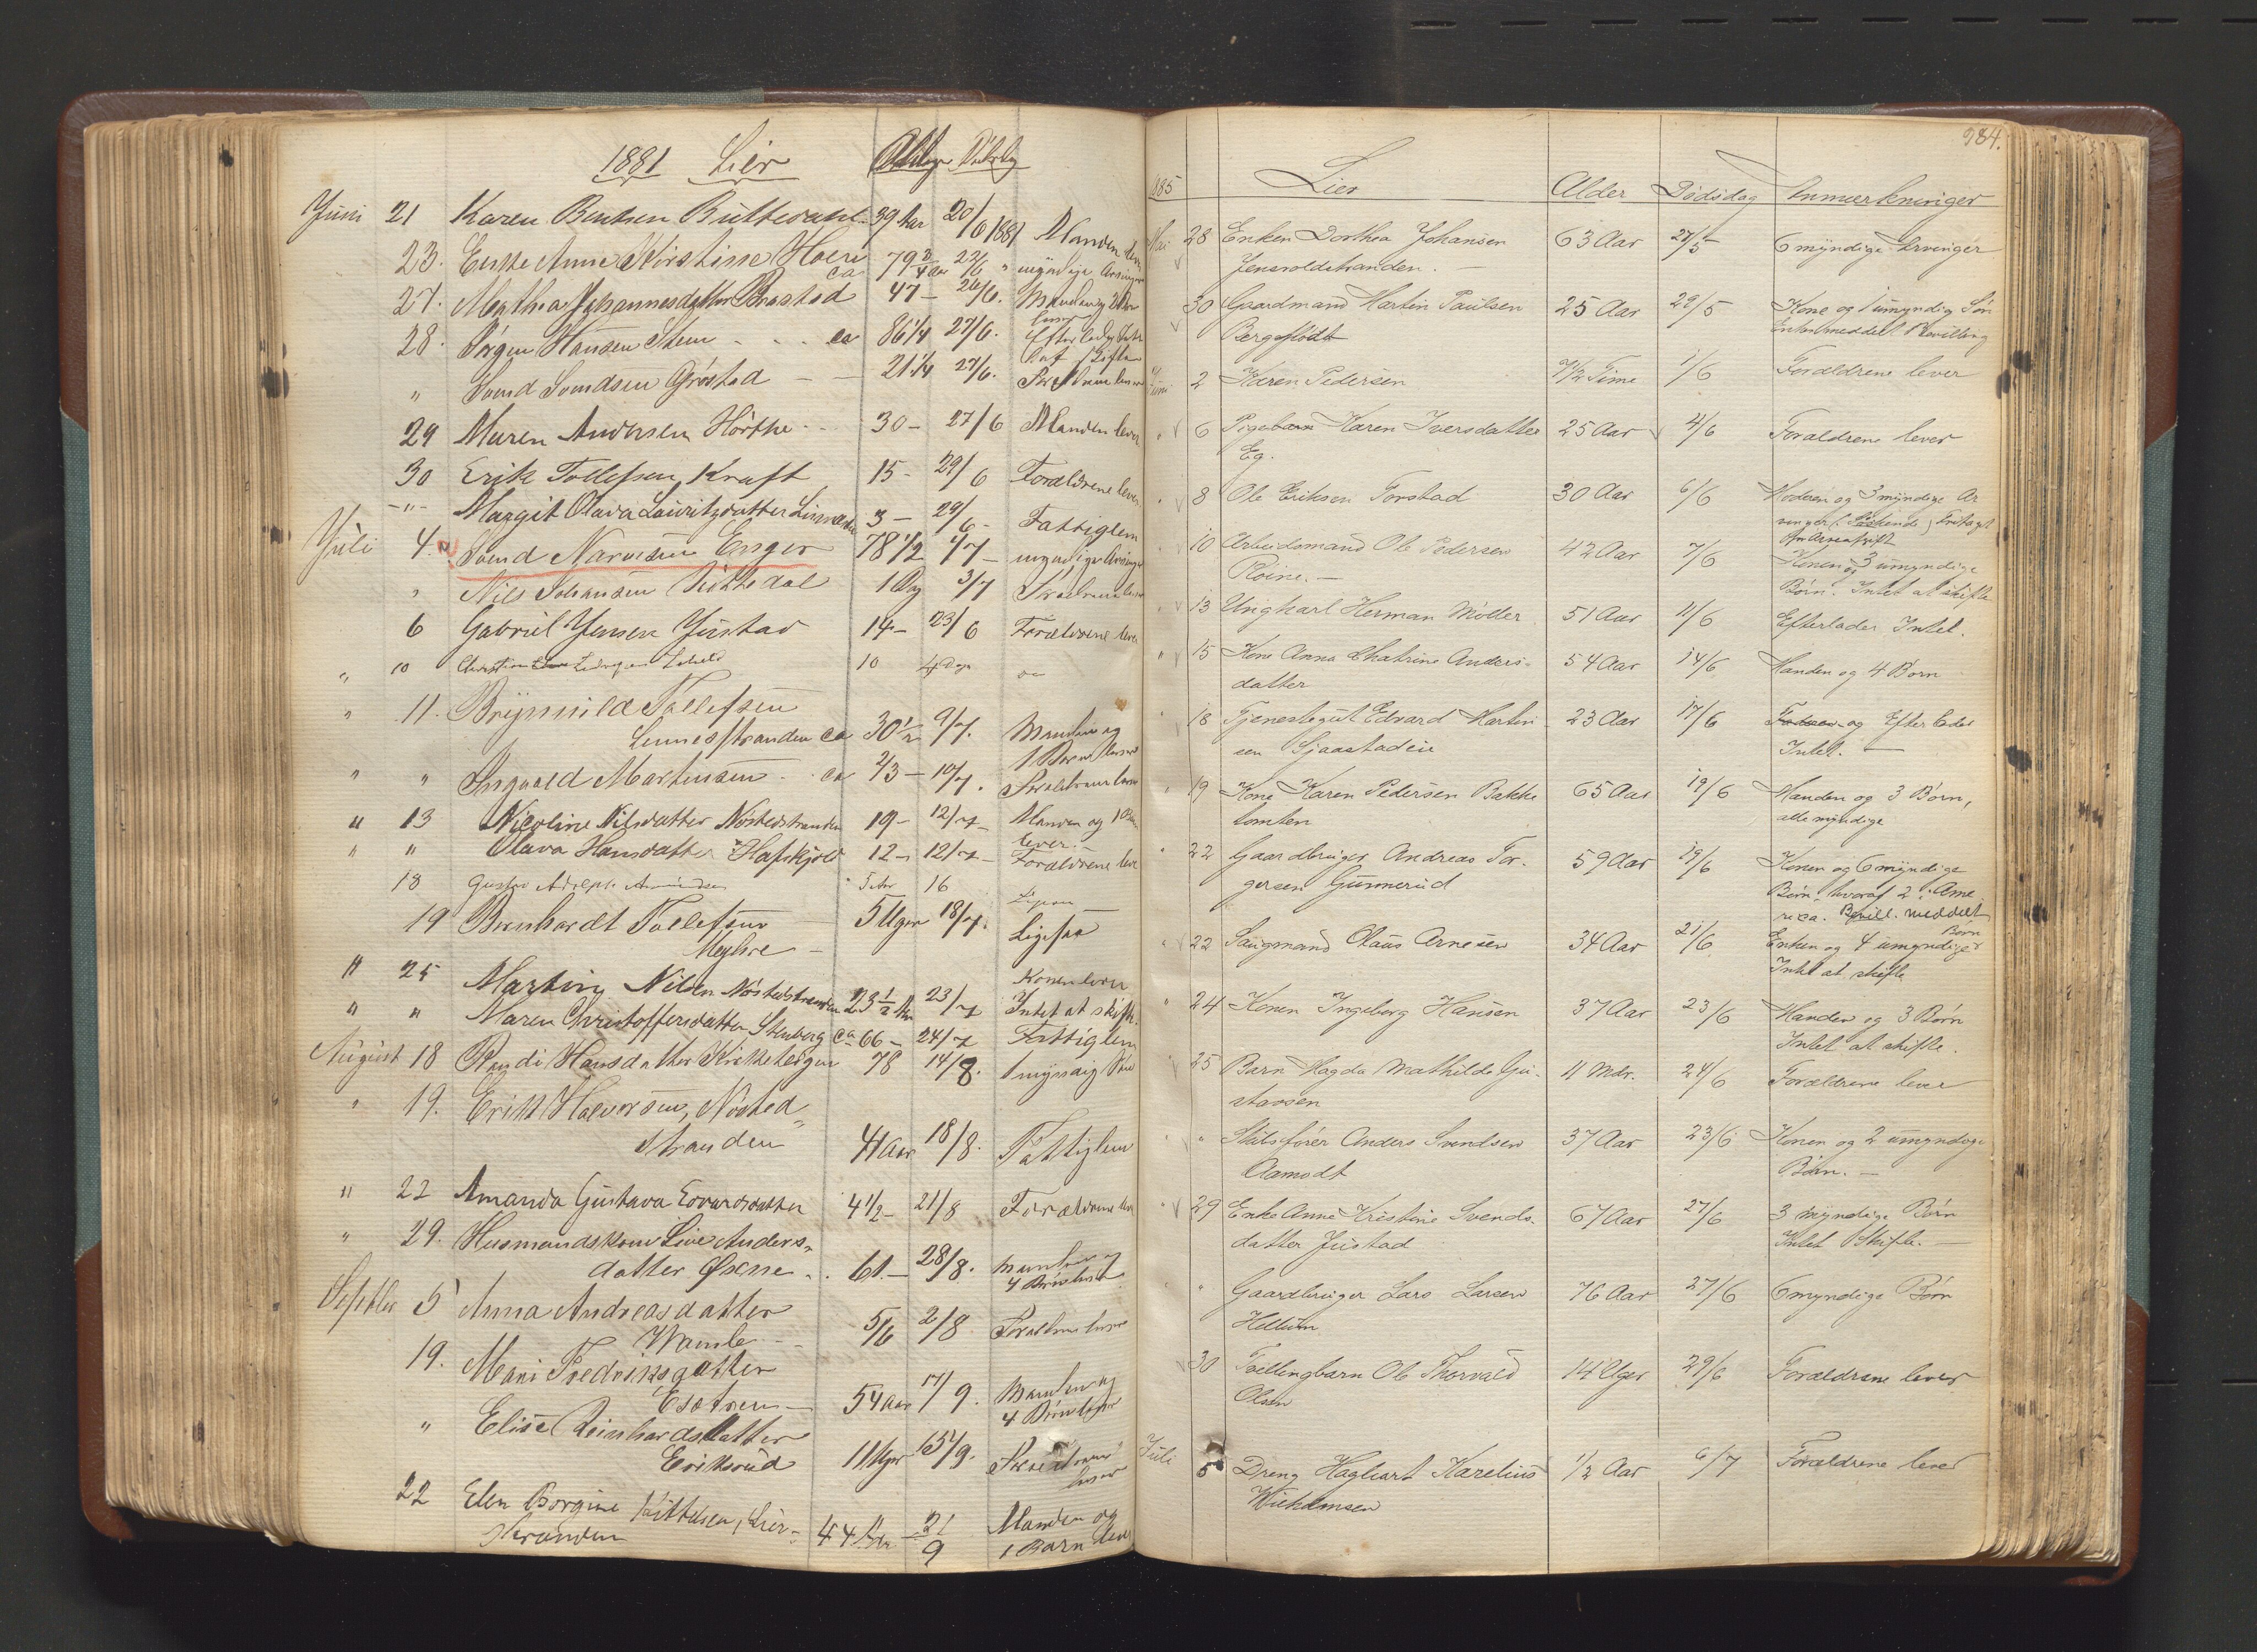 1881 Lier
Juni 21 Karen Bentsen Buttedahl 39 Aar 20/6 1881 Manden lever
23. Enke Anne Kirstine Hoen ca 79 3/4 Aar 22/6 " myndige Arvinger
27. Marthea Johannesdatter Brastad 47 - 26/6. Manden og Børn
lever
28. Jørgen Hansen Stein ca 86 1/4 27/6. Efterladt Intet
at skifte
" Svend Svendsen Grøstad 21 1/4 27/6. Forældrene lever
29 Maren Andersen Hørthe 30 - 27/6 Manden lever
30 Erik Tollefsen Kraft 15 - 29/6 Forældrene lever
-"- Margit Olava Lauritzdatter 3 - 29/6 - Fattiglem
Juli 4. Svend Narvesen Enger 78 1/2 1/7 - myndige Arvinger
" Nils Johansen 1 Dag 3/7 Forældrene lever
6 Gabriel Jensen Justad 14 - 23/6 Forældrene lever
" 10 10 4 Dage
" 11. Brynhild Tollefsen
Linnesstranden ca 30 1/2 9/7. Manden og
1 Barn lever
" " Ingvald Martinsen ca 2/3 - 10/7. Forældrene lever
" 13 Nicoline Nilsdatter Nøstedstranden 19 - 12/7 - Manden og 1 Barn
lever.
" " Olava Hansdatter Hafskjold 12 - 12/7 - Forældrene lever
18 Gustav Adolph Amundsen 5 Aar 16
19 Bernhardt Tollefsen 5 Uger 18/7. Ligesaa
Meghre -
" 25 Martin Nilsen Nøstedstranden 23 1/2 Aar 23/7 Konen lever
Intet at skifte.
" " Maren Christoffersdatter Stenberg ca 66 - 24/7 Fattiglem
August 18 Randi Hansdatter Kirkebergen 78 14/8. 1 myndig Søn
" 19. Erik Halvorsen, Nøsted-
stranden 41 Aar 18/8. Fattiglem
" 22 Amanda Gustava Edvardsdatter 4 1/2 - 21/8 Forældrene lever
" 29. Husmandskone Live Anders-
datter Øxne 61. - 28/8. Manden og
4 Børn lever
Septbr 5 Anna Andreasdatter
Wamle - 5/6 2/8 Forældrene lever
19. Mari Fredriksdatter
54 Aar 17/9. Manden og
4 Børn lever
" Elise Reinhardsdatter
Eriksrud 11 Uger 15/9. Forældrene
lever
22 Elen Borgine Kittelsen, Lier-
stranden 44 Aar 21/9 Manden og
1 Barn lever
284.
1885 Lier Alder Dødsdag Anmærkninger
Mai 28 Enken Dorthea Johansen 63 Aar 27/5 6 myndige Arvinger
Jensvoldstranden. -
30 Gaardmand Martin Paulsen 25 Aar 29/5 Kone og 1 umyndig Søn
Bergsflødt Enken meddelt Bevilling
Juni 2 Karen Pedersen 7 1/2 Time 1/6 Forældrene lever
" 6 Pigebarn Karen Iversdatter 25 Aar 4/6 Forældrene lever
Eg.
" 8 Ole Eriksen Torstad 30 Aar 6/6 Moderen og 3 myndige Ar
vinger (Søskende)
" 10 Arbeidsmand Ole Pedersen 42 Aar 7/6 Konen og 3 umyndige
Roine. - Børn. Intet at skifte
" 13 Ungkarl Herman Møller 51 Aar 11/6 Efterlader Intet.
" 15 Kone Anna Chatrine Anders- 54 Aar 14/6 Manden og 4 Børn
datter
" 18 Tjenestegut Edvard Martin- 23 Aar 17/6 og Efterlader
sen Sjaastadeie Intet. -
" 19 Kone Karen Pedersen Bakke 65 Aar 19/6 Manden og 3 Børn,
tomten alle myndige
" 22 Gaardbruger Andreas Tor- 59 Aar 19/6 Konen og 6 myndige
gersen Gunnerud Børn, hvoraf 2 i Ame
rica. Bevill. meddelt
" 22 Saugmand Olaus Arnesen 34 Aar 21/6 Enken og 4 umyndige Børn
Intet at skifte
" 24 Konen Ingeborg Hansen 37 Aar 23/6 Manden og 3 Børn
Intet at skifte.
" 25 Barn Magda Mathilde Gu- 11 Mdr. 24/6 Forældrene lever
stavsen
" " Skudsfører Anders Svendsen 37 Aar 23/6 Konen og 2 umyndige
Aamodt Børn. -
" 29 Enke Anne Kristine Svends- 67 Aar 27/6 3 myndige Børn
datter Justad Intet Skifte. -
" " Gaardbruger Lars Larsen 76 Aar 27/6 6 myndige Børn
Hellum
30 Tvillingbarn Ole Thorvald 14 Uger 29/6 Forældrene lever
Olsen
Juli 6 Dreng Hagbart Karelius 1/2 Aar 6/7 Forældrene lever
Wilhelmsen